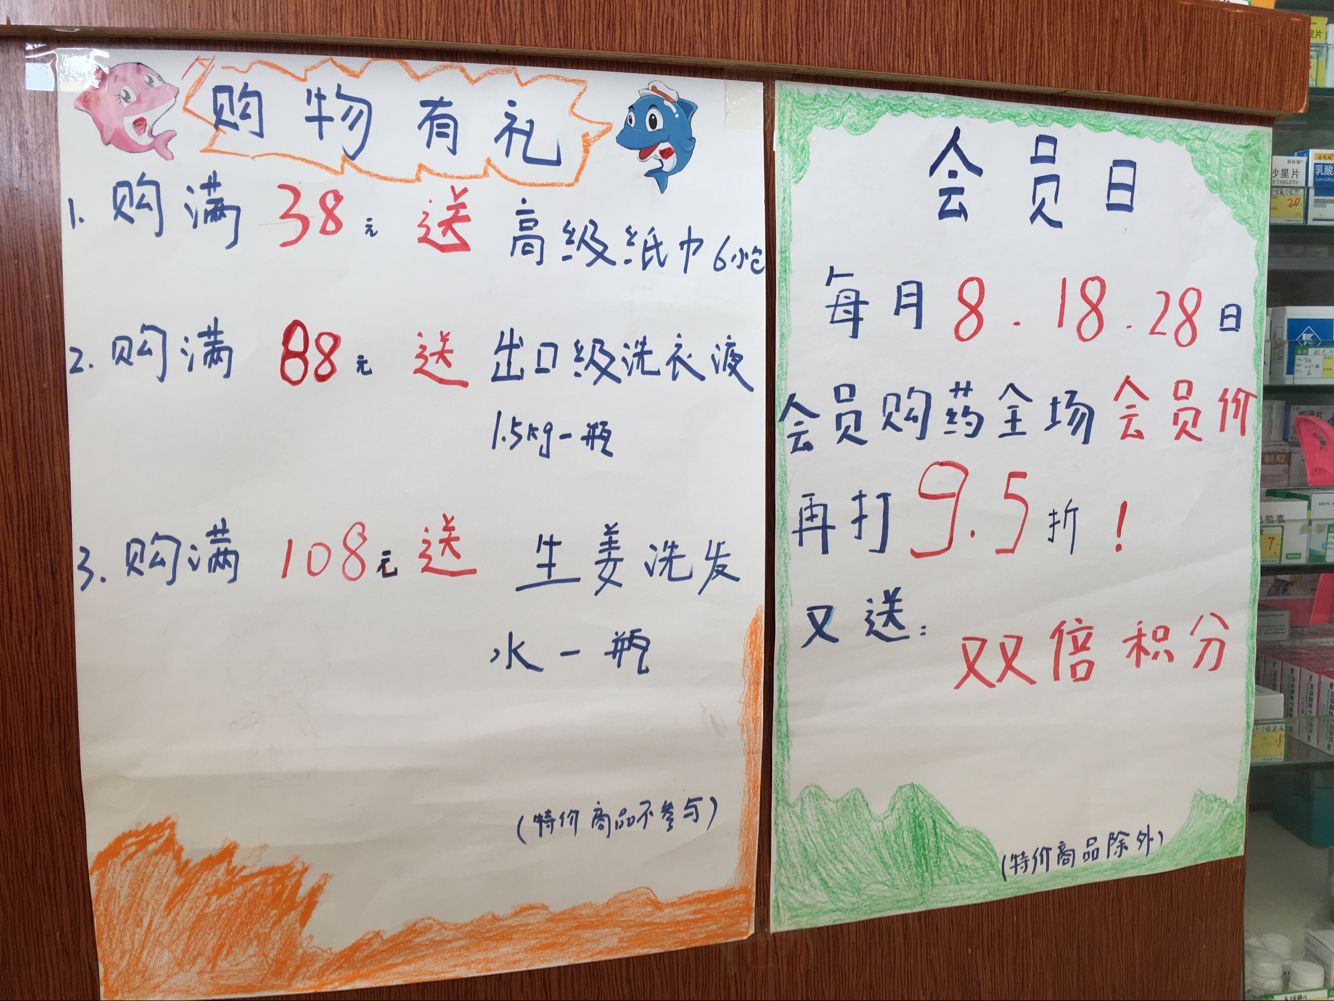 购物有礼
1. 购满38元送高级纸巾6小包
2. 购满88元送出口级洗衣液
1.5kg一瓶
3. 购满108元送生姜洗发
水一瓶
(特价商品不参与)
会员日
每月8.18.28日
会员购药全场会员价
再打9.5折!
又送:
双倍积分
(特价商品除外)